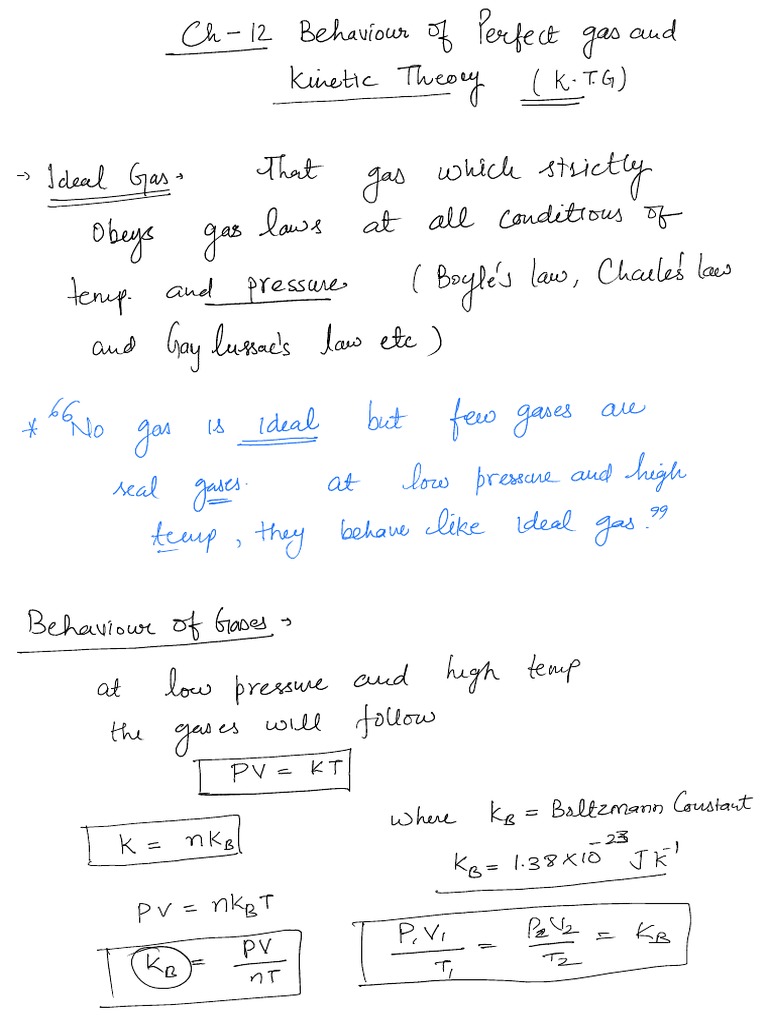 Ch-12 Behaviour of Perfect gas and
Kinetic Theory (K.T.G)
→ Ideal Gas → That gas which strictly
obeys gas laws at all conditions of
temp. and pressure (Boyle's law, Charles's law
and Gay lussac's law etc)
* “No gas is ideal but few gases are
real gases. at low pressure and high
temp, they behave like ideal gas.”
Behaviour of Gases →
at low pressure and high temp
the gases will follow
PV = KT
where K_B = Boltzmann Constant
K = nK_B
K_B = 1.38 × 10⁻²³ J K⁻¹
PV = nK_BT
K_B = PV / nT
P₁V₁ / T₁ = P₂V₂ / T₂ = K_B